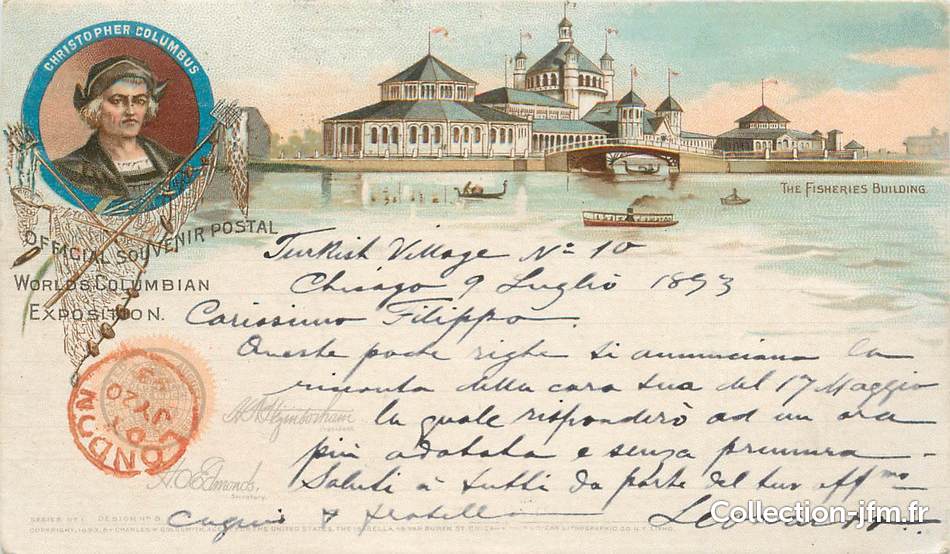 CHRISTOPHER COLUMBUS
Collection-jfm.fr
THE FISHERIES BUILDING.
OFFICIAL SOUVENIR POSTAL
WORLD'S COLUMBIAN
EXPOSITION.
Turkish Village Nº 10
Chicago 9 Luglio 1893
Carissimo Filippo.
Queste poche righe ti annunciano la
risposta della cara tua del 17 Maggio
la quale risponderò ad un ora
più adatata e senza premura.
Saluti à tutti da parte del tuo affmo
Cugino & fratello
LONDON
JY 20
93
President.
A. O. Edmonds.
Secretary.
SERIES Nº 1. DESIGN Nº
COPYRIGHT, 1893, BY CHARLES W. GOLDSMITH, THE UNITED STATES, VAN BUREN ST. CHICAGO LITHOGRAPHIC CO. N.Y. LITHO.
Collection-jfm.fr